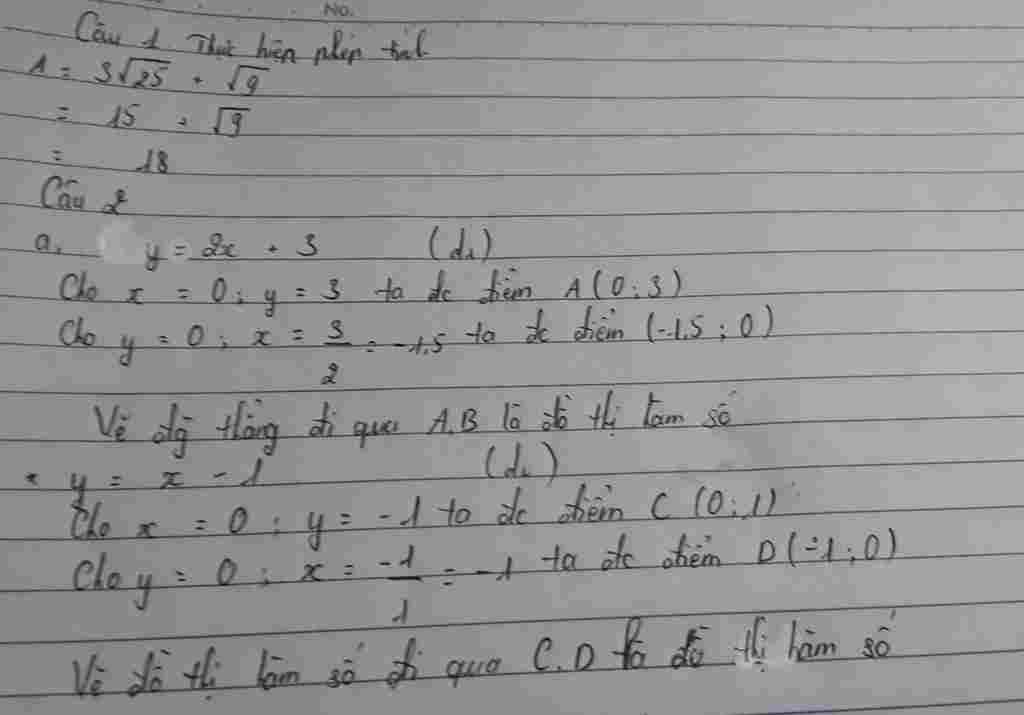 No.
Câu 1 Thực hiện phép tính
A = 3√25 + √9
= 15 + √9
= 18
Câu 2
a, y = 2x + 3 (d₁)
Cho x = 0 ; y = 3 ta đc điểm A (0 ; 3)
Cho y = 0 ; x = 3/2 = -1,5 ta đc điểm (-1,5 ; 0)
Vẽ đg thẳng đi qua A.B là đồ thị hàm số
* y = x - 1 (d₂)
Cho x = 0 ; y = -1 ta đc điểm C (0 ; 1)
Cho y = 0 ; x = -1/1 = -1 ta đc điểm D (-1 ; 0)
Vẽ đồ thị hàm số đi qua C.D là đồ thị hàm số